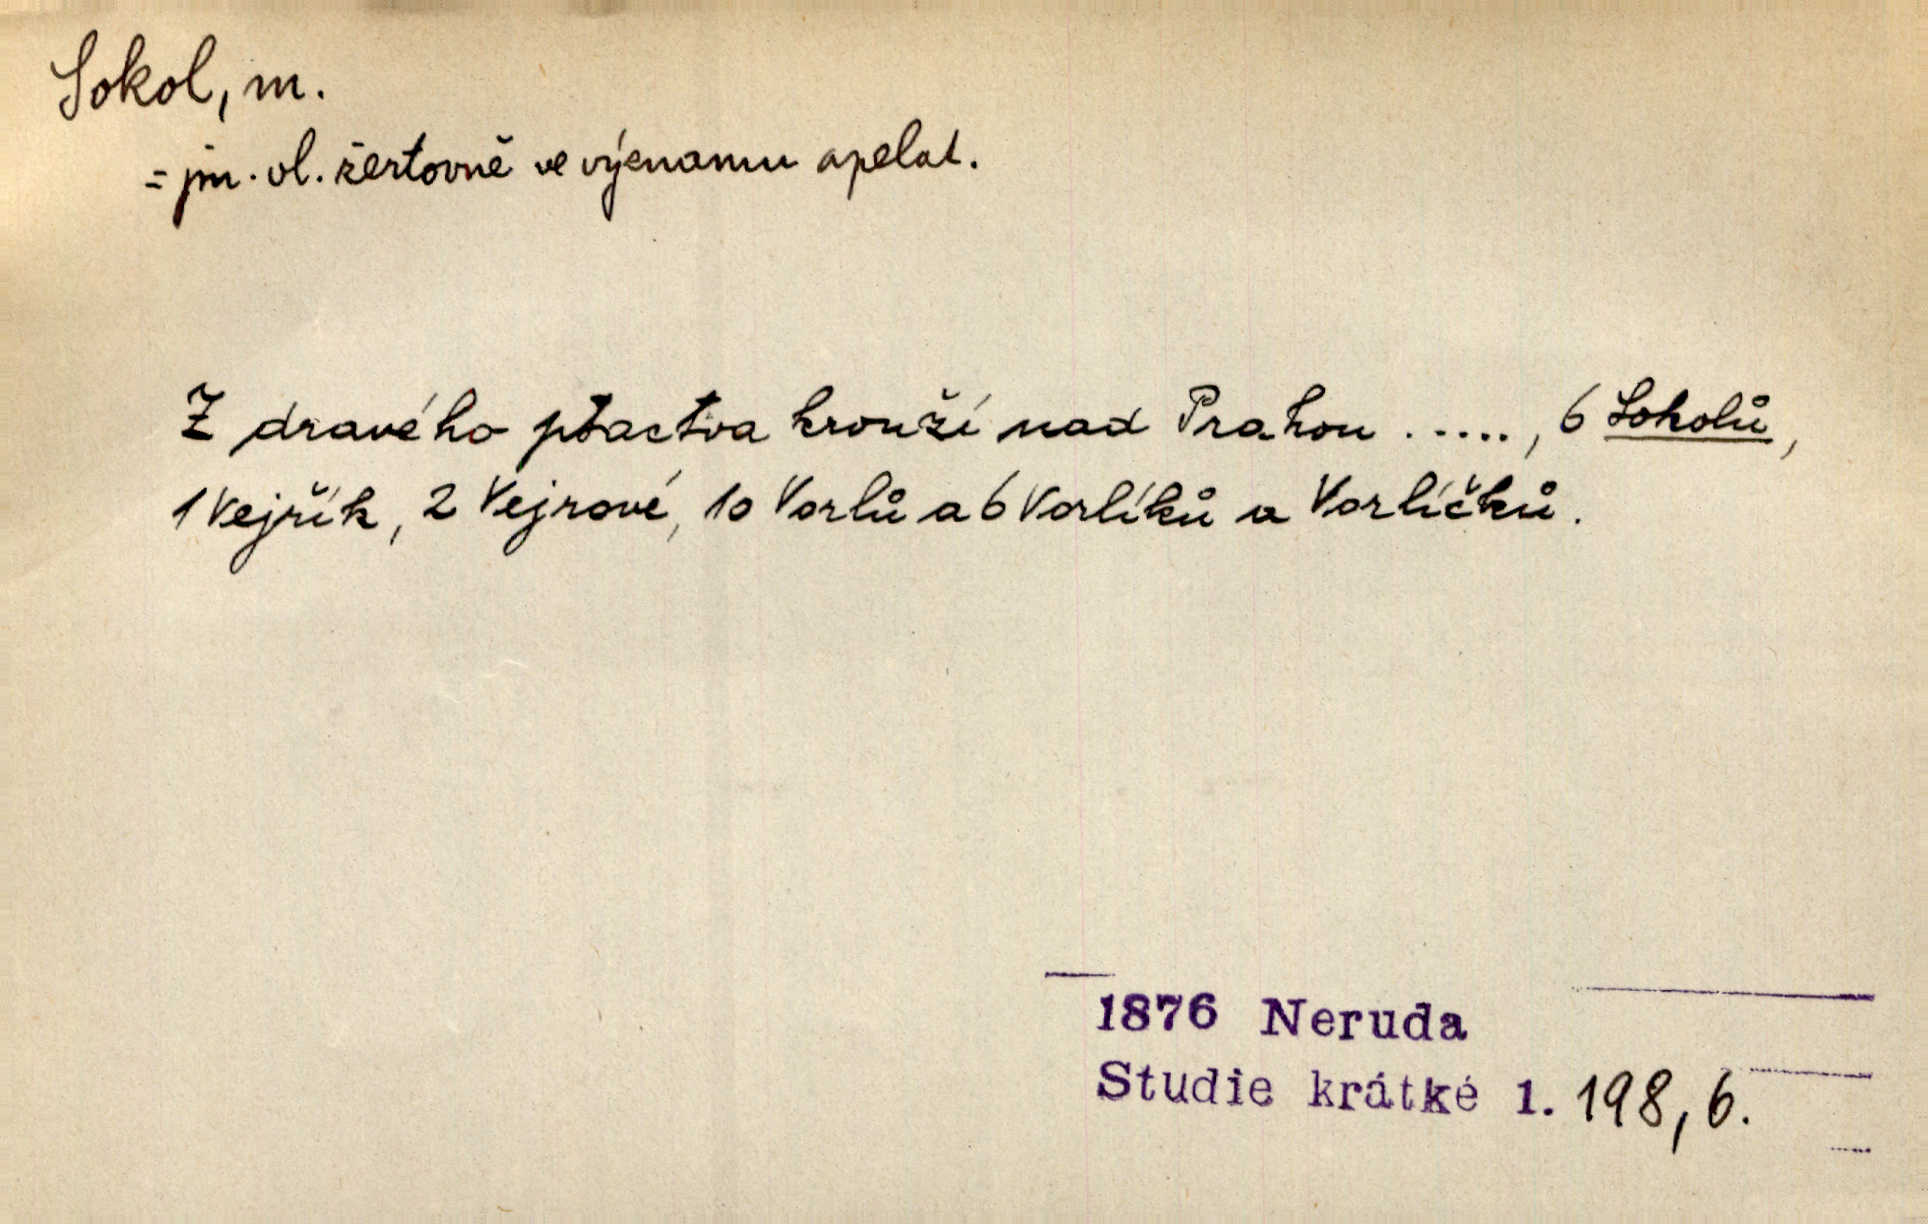 Sokol, m.
= jm. vl. žertovně ve významu apelat.
Z dravého ptactva krouží nad Prahou ....., 6 Sokolů,
1 Vejřík, 2 Vejrové, 10 Vorlů a 6 Vorlíků a Vorlíčků.
1876 Neruda
Studie krátké 1. 198, 6.